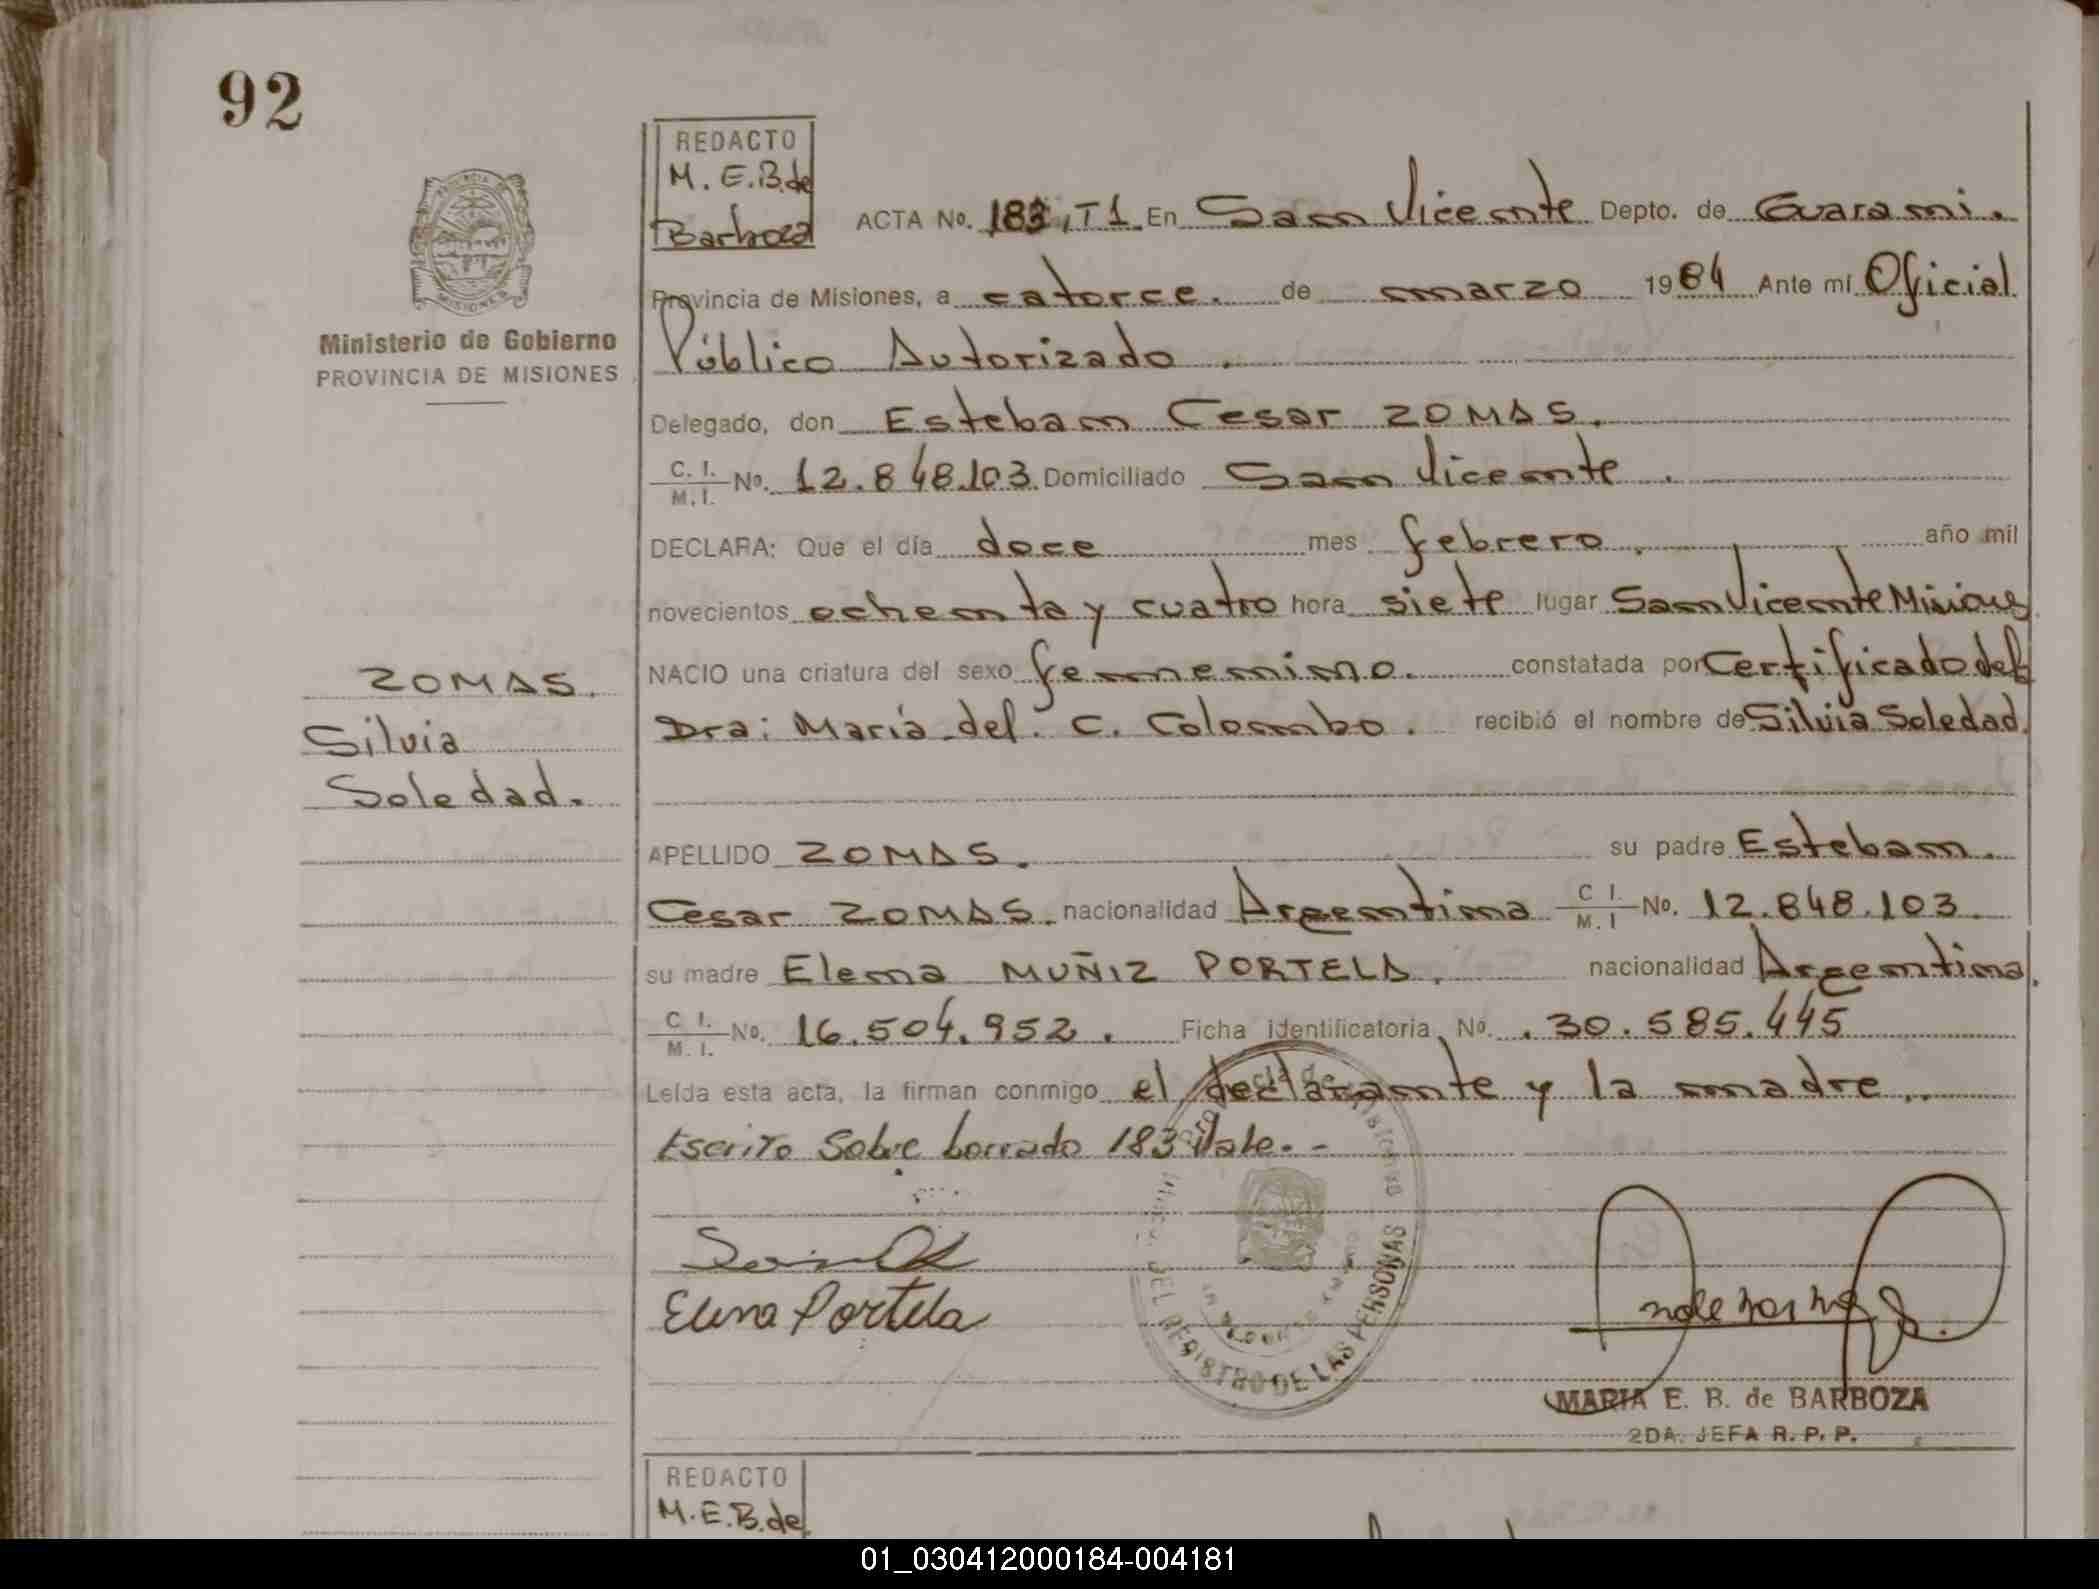 92
REDACTO
M. E. B. de
Barboza
ACTA No. 183, T1 En San Vicente Depto. de Guarani.
Provincia de Misiones, a catorce. de marzo 1984 Ante mí Oficial
Público Autorizado.
Ministerio de Gobierno
PROVINCIA DE MISIONES
Delegado, don Esteban Cesar ZOMAS.
C. I. / M. I. No. 12.848.103. Domiciliado San Vicente.
DECLARA: Que el día doce mes febrero. año mil
novecientos ochenta y cuatro hora siete lugar San Vicente Misiones
NACIO una criatura del sexo femenino. constatada por Certificado de la
Dra: María del. C. Colombo. recibió el nombre de Silvia Soledad.
ZOMAS.
Silvia
Soledad.
APELLIDO ZOMAS. su padre Esteban.
Cesar ZOMAS. nacionalidad Argentina C I. / M. I No. 12.848.103.
su madre Elena MUÑIZ PORTELA. nacionalidad Argentina.
C I. / M. I. No. 16.504.952. Ficha identificatoria No. .30.585.445
Leída esta acta, la firman conmigo el declarante y la madre..
Escrito Sobre borrado 183 Vale.-
Elena Portela
DEL REGISTRO DE LAS PERSONAS
MARIA E. B. de BARBOZA
2DA. JEFA R. P. P.
REDACTO
M. E. B. de
01_030412000184-004181